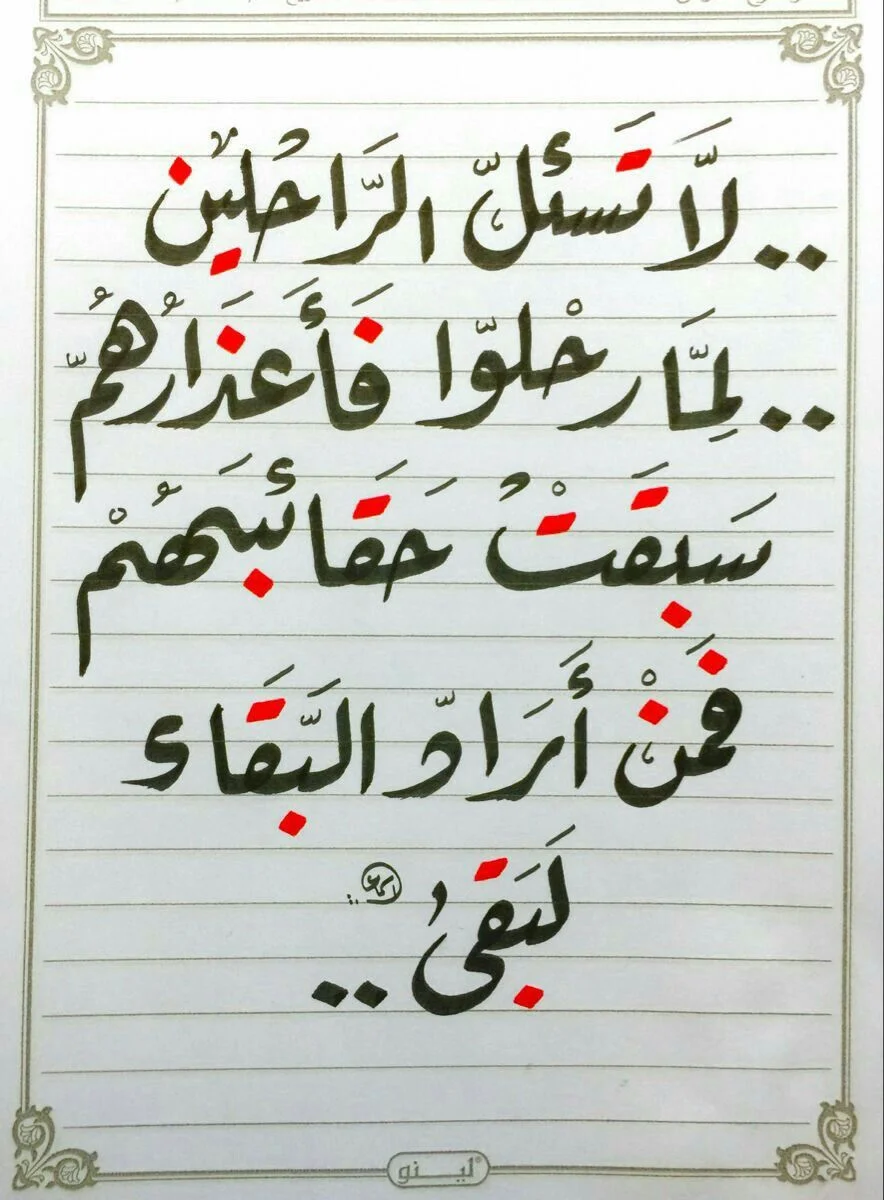 .. لَا تَسئلّ الرَّاحلين
.. لِمَّا رحْلوّا فَأَعذَارُهُمّ
سَبقَتْ حَقَائبَهُمْ
فَمَنْ أَرَادّ البَّقَاء
لَبَقىُ ..
لينو